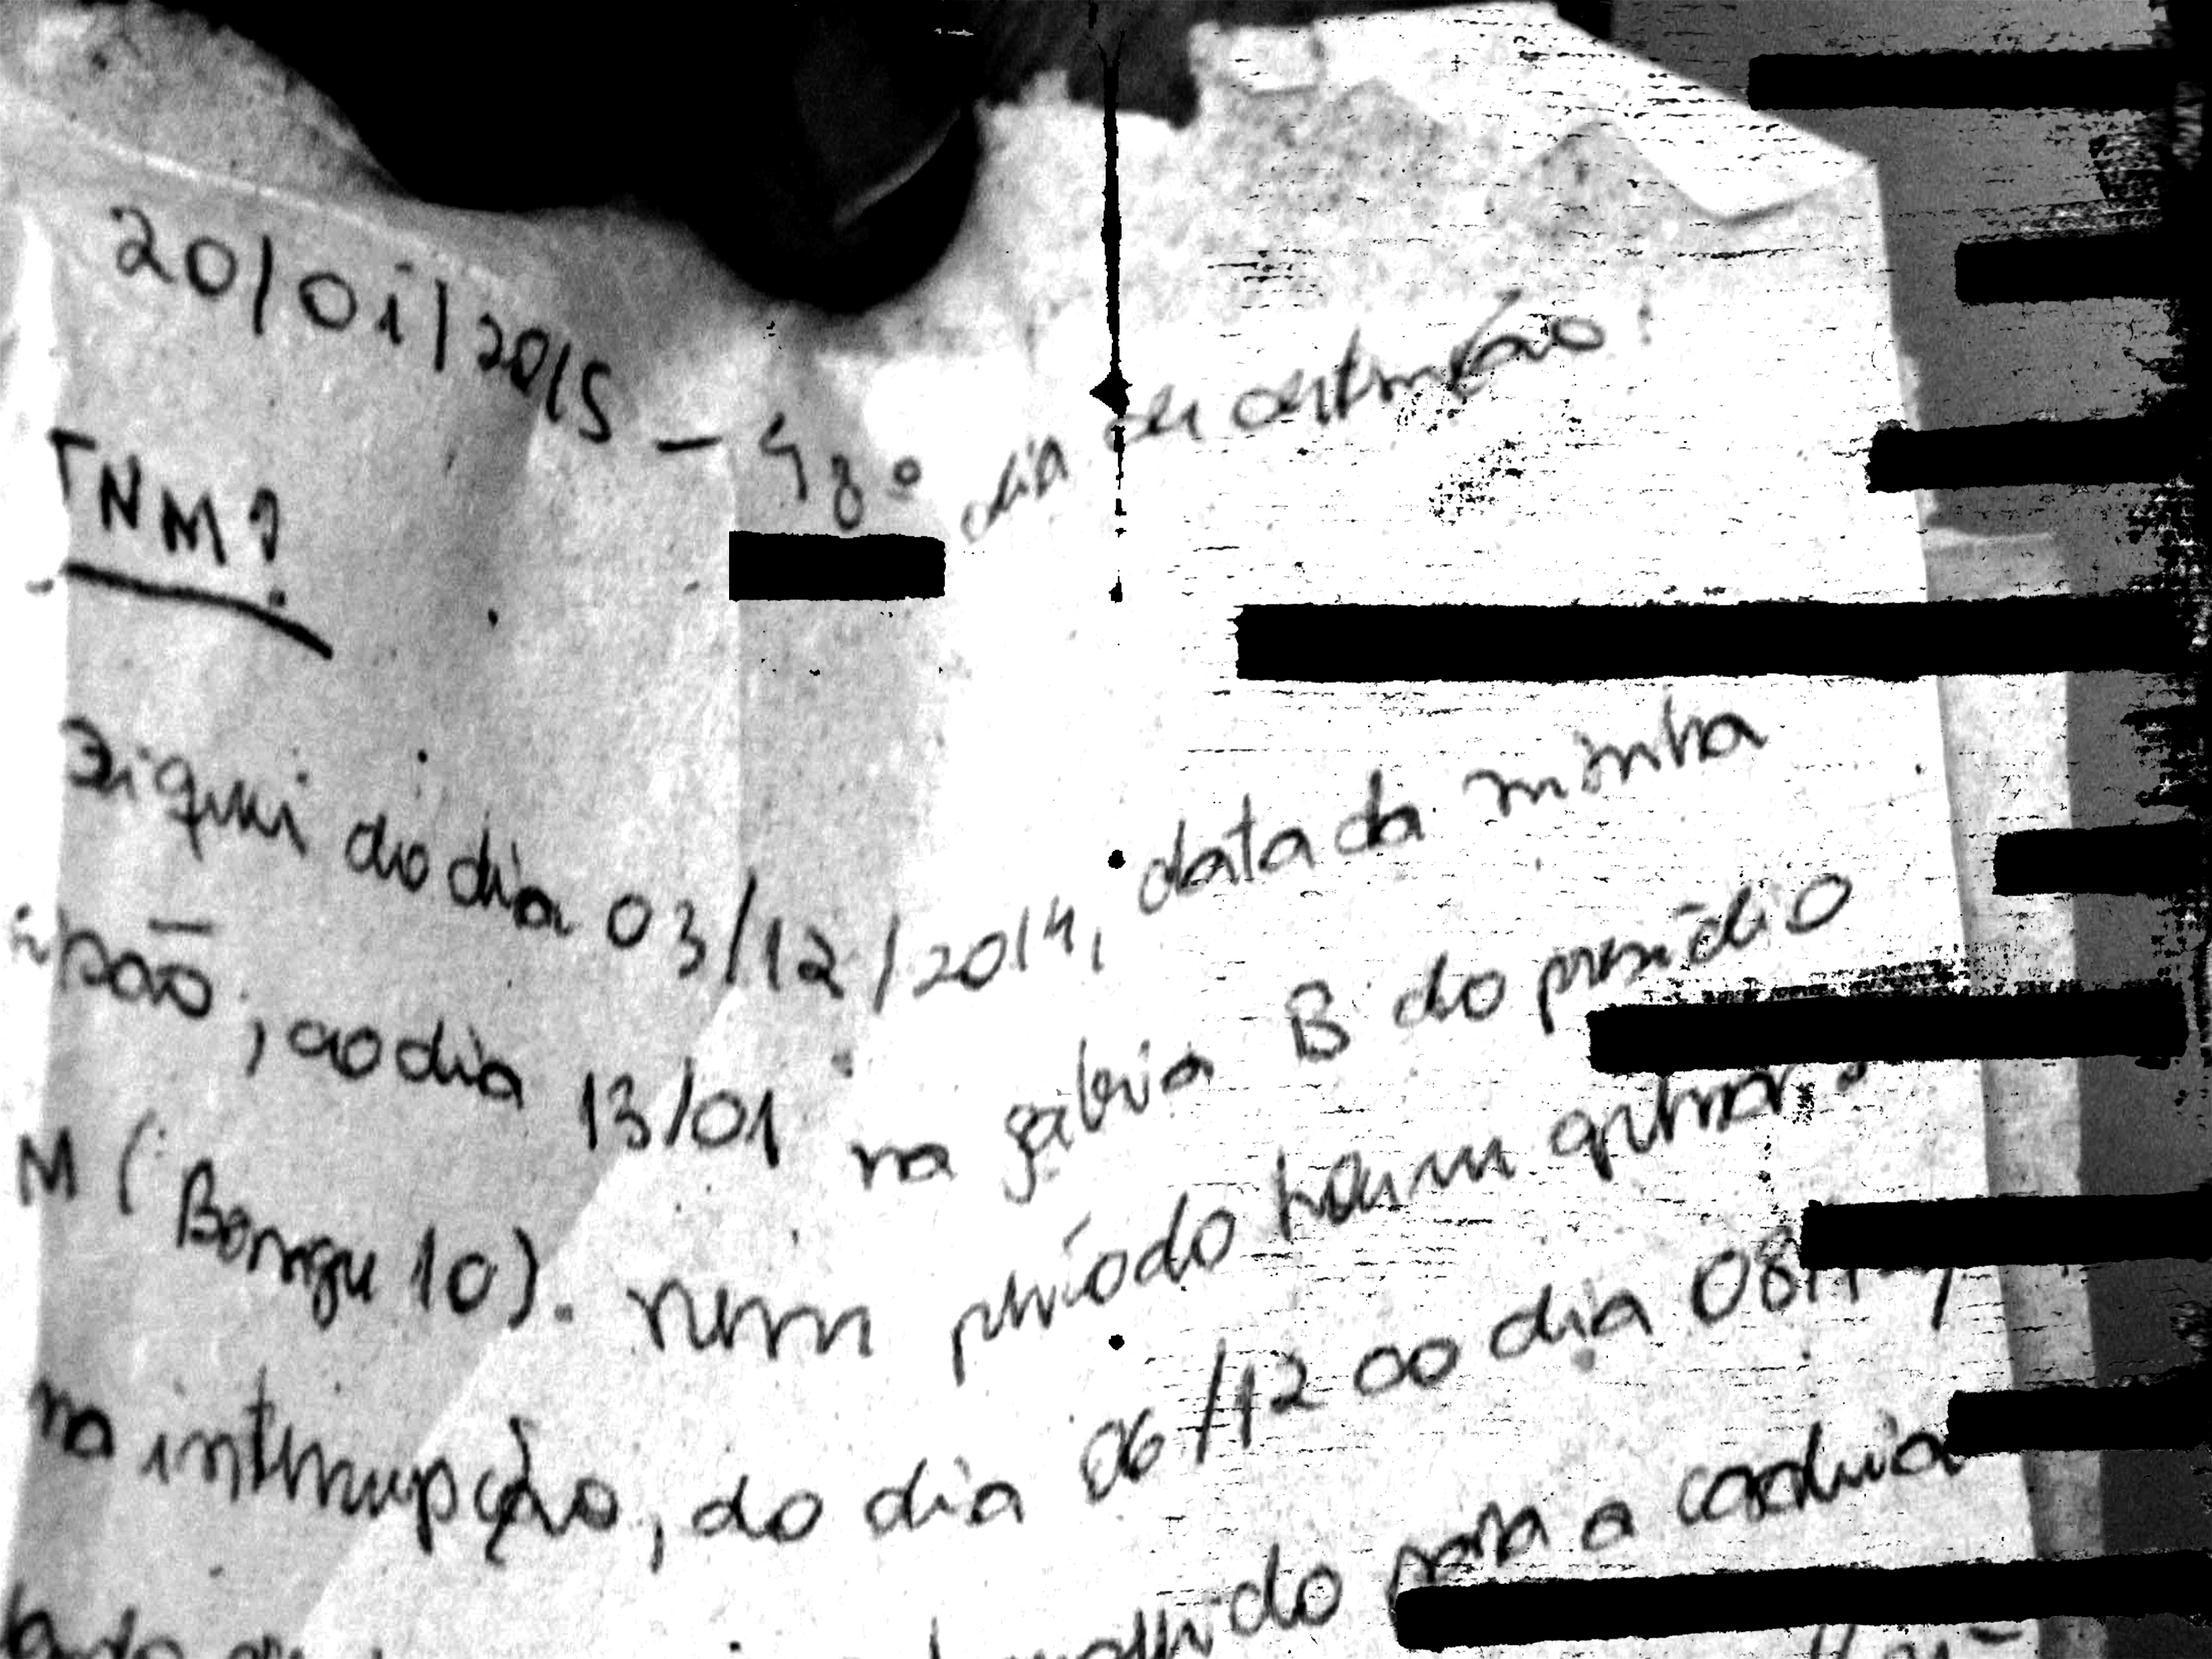 20/01/2015 - 48º dia de detenção!
TNM?
Fiquei do dia 03/12/2014, data da minha
prisão, ao dia 13/01 na galeria B do presídio
M (Bangu 10). Nesse período houve apenas
na interrupção, do dia 06/12 ao dia 08/12,
do para a cadeia